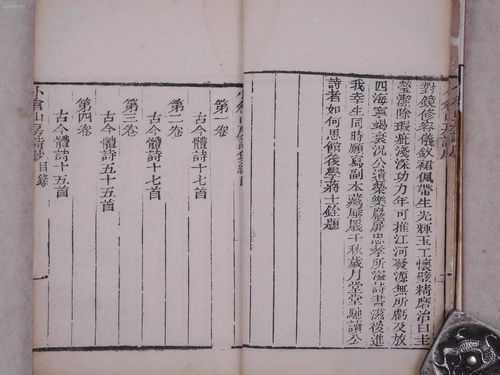 對鏡修容儀釵裙佩帶生光輝玉工懷璧精磨治白圭
瑩潔除瑕疵淺深功力年可推江河發源無所虧及放
四海寧竭衰況公遺榮樂巖扉忠孝所溢詩書滋後進
我幸生同時願寫副本藏屝屐千秋歲月堂堂馳讀公
詩者如何思館後學蔣士銓題
第一卷
古今體詩十七首
第二卷
古今體詩十七首
第三卷
古今體詩五十五首
第四卷
古今體詩十五首
小倉山房詩鈔 目錄